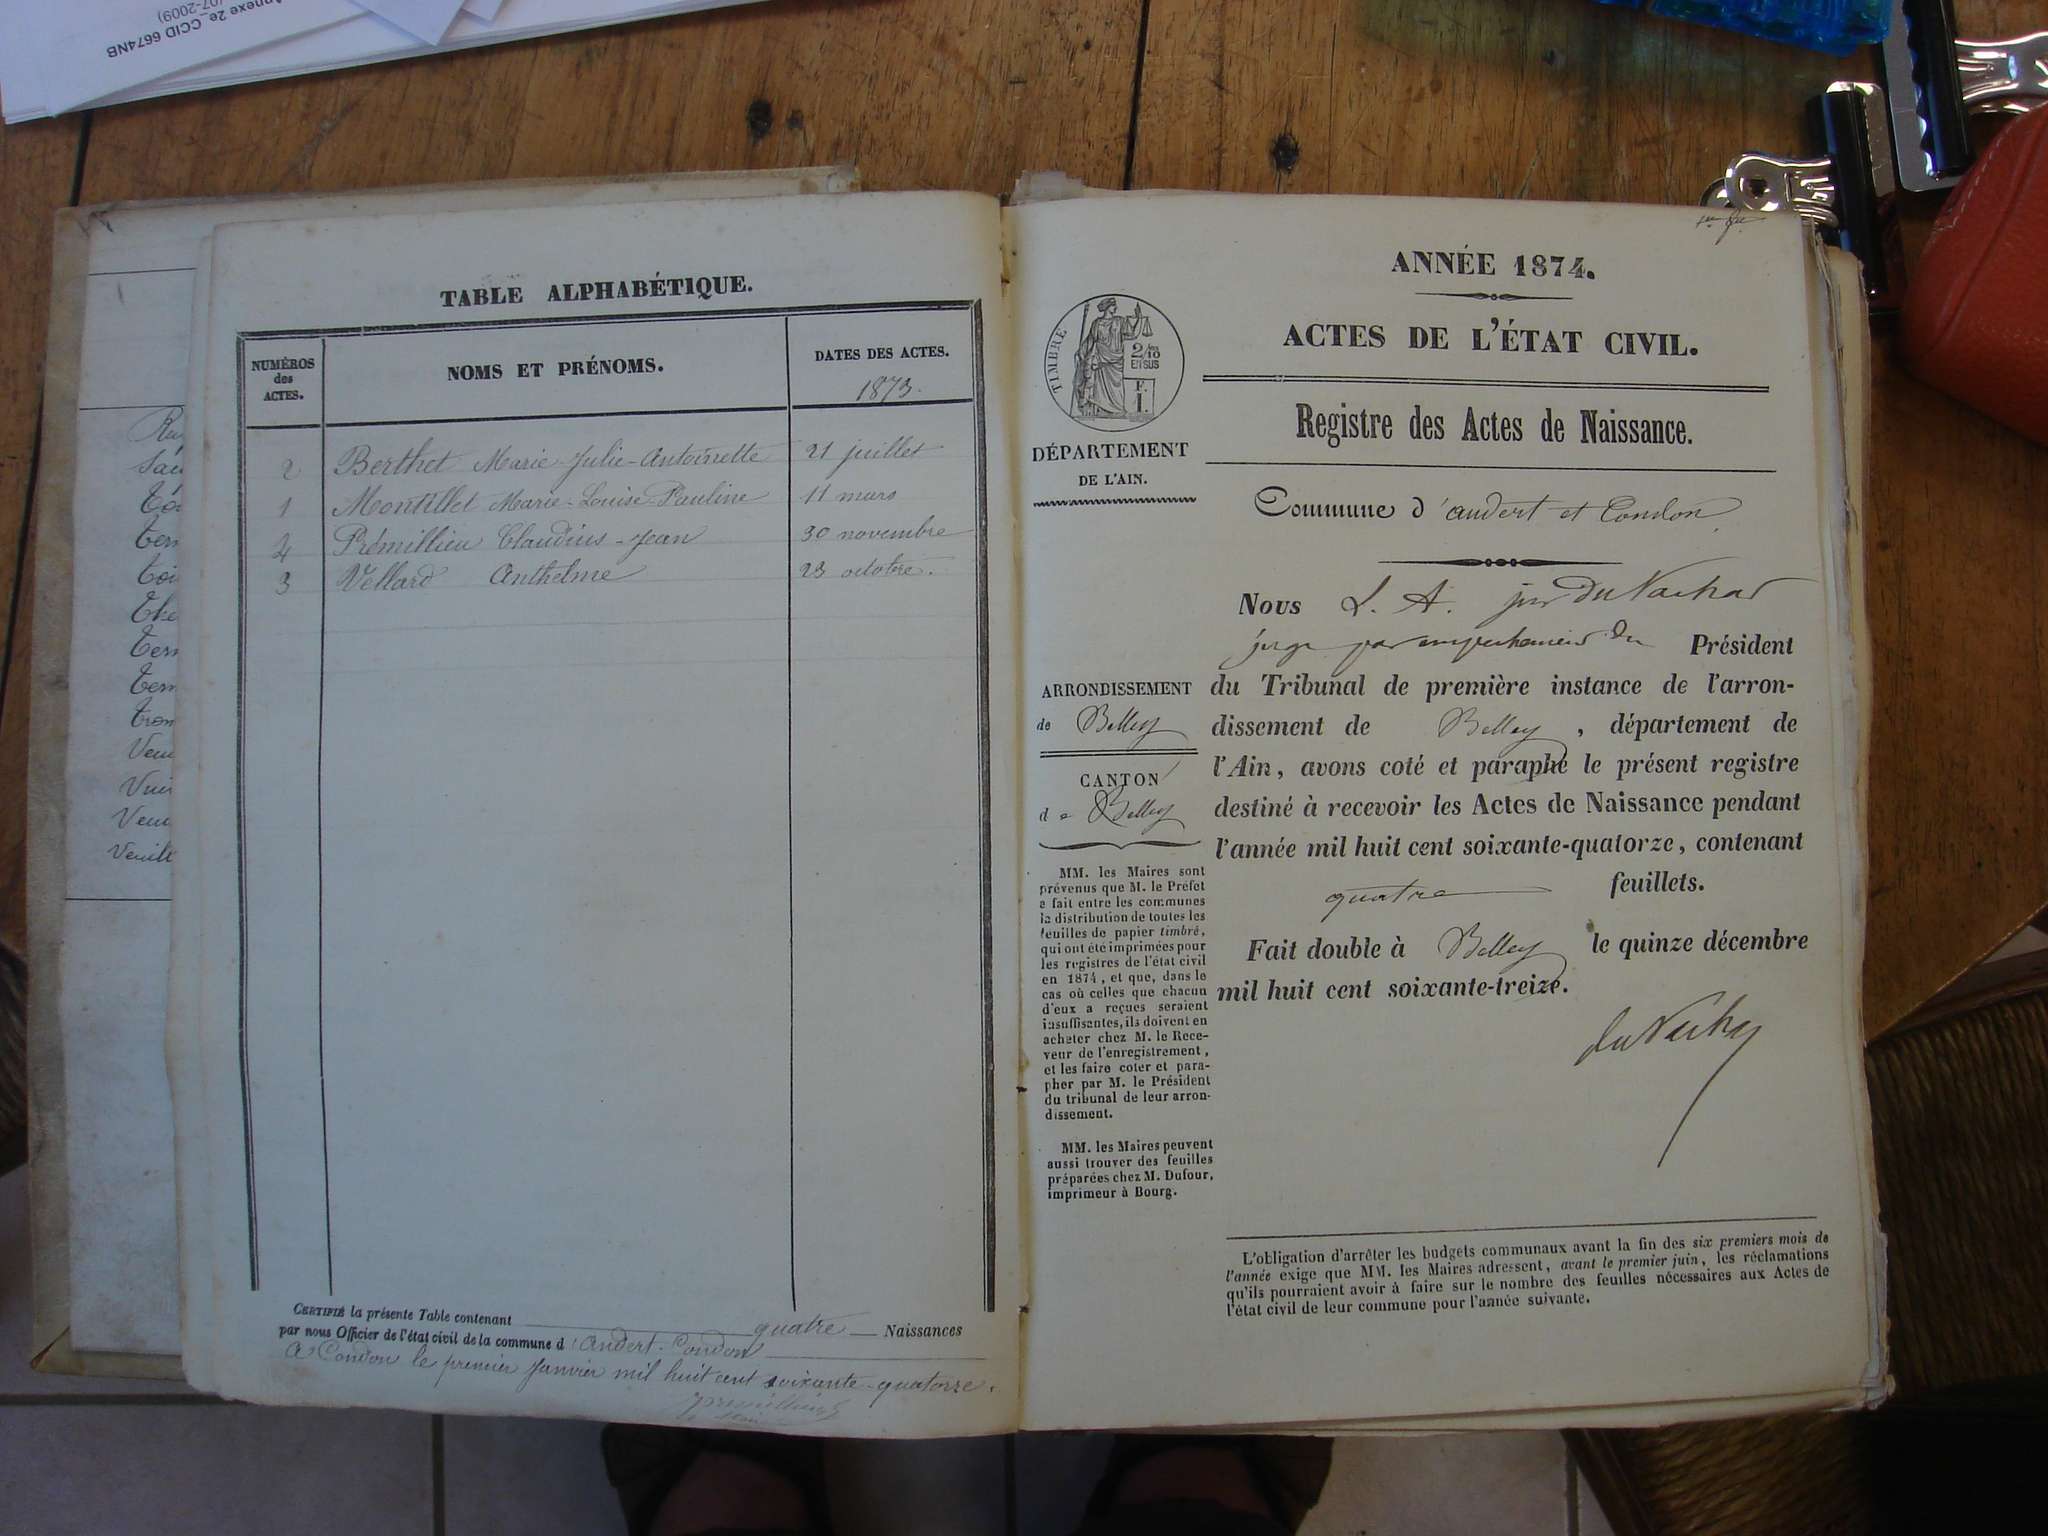 Annexe 2e_CCID 6674NB
07-2009)
TABLE ALPHABÉTIQUE.
NUMÉROS
des
ACTES.
NOMS ET PRÉNOMS.
DATES DES ACTES.
1873.
2 Berthet Marie-Julie-Antoinette 21 juillet
1 Montillet Marie-Louise-Pauline 11 mars
4 Prémillieu Claudius-Jean 30 novembre
3 Vellard Anthelme 23 octobre.
CERTIFIÉ la présente Table contenant quatre Naissances
par nous Officier de l'état civil de la commune d'Andert-Condon
A Condon le premier Janvier mil huit cent soixante-quatorze.
ANNÉE 1874.
ACTES DE L'ÉTAT CIVIL.
Registre des Actes de Naissance.
TIMBRE
2/10
EN SUS
F.
1.
DÉPARTEMENT
DE L'AIN.
Commune d'andert et Condon
Nous L. A.
juge par empechement du Président
du Tribunal de première instance de l'arron-
dissement de Belley, département de
l'Ain, avons coté et paraphé le présent registre
destiné à recevoir les Actes de Naissance pendant
l'année mil huit cent soixante-quatorze, contenant
quatre feuillets.
Fait double à Belley le quinze décembre
mil huit cent soixante-treize.
ARRONDISSEMENT
de Belley
CANTON
de Belley
MM. les Maires sont
prévenus que M. le Préfet
a fait entre les communes
la distribution de toutes les
feuilles de papier timbré,
qui ont été imprimées pour
les registres de l'état civil
en 1874, et que, dans le
cas où celles que chacun
d'eux a reçues seraient
insuffisantes, ils doivent en
acheter chez M. le Rece-
veur de l'enregistrement,
et les faire coter et para-
pher par M. le Président
du tribunal de leur arron-
dissement.
MM. les Maires peuvent
aussi trouver des feuilles
préparées chez M. Dufour,
imprimeur à Bourg.
L'obligation d'arrêter les budgets communaux avant la fin des six premiers mois de
l'année exige que MM. les Maires adressent, avant le premier juin, les réclamations
qu'ils pourraient avoir à faire sur le nombre des feuilles nécessaires aux Actes de
l'état civil de leur commune pour l'année suivante.